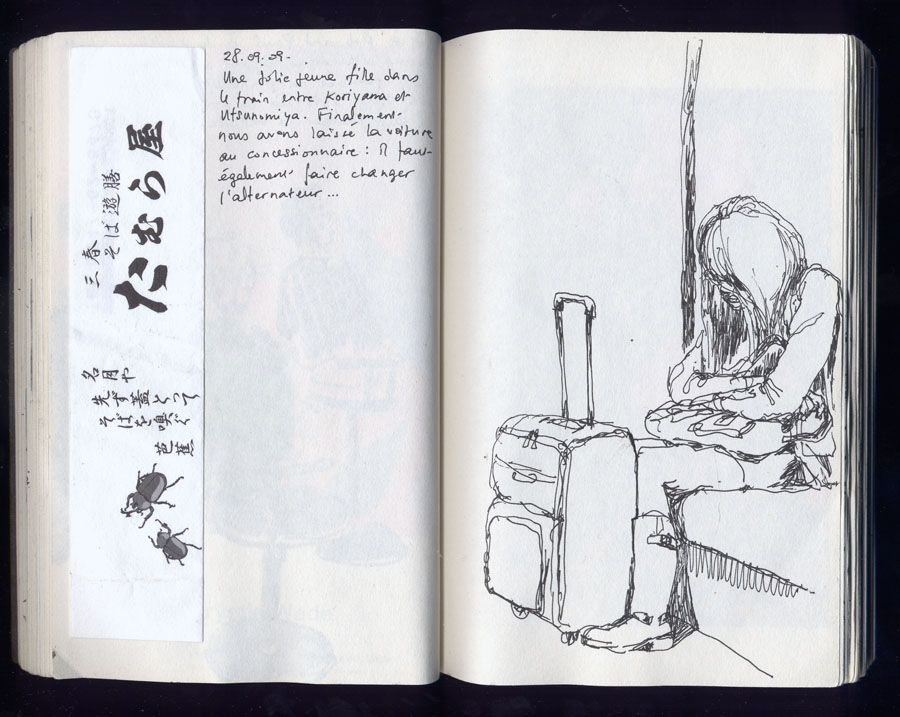 たむら屋
三春 そば遊膳
名月や
先ず蓋とって
そばを嗅ぐ
芭蕉
28.09.09.
Une jolie jeune fille dans
le train entre Koriyama et
Utsunomiya. Finalement
nous avons laissé la voiture
au concessionnaire : il faut
également faire changer
l'alternateur ...